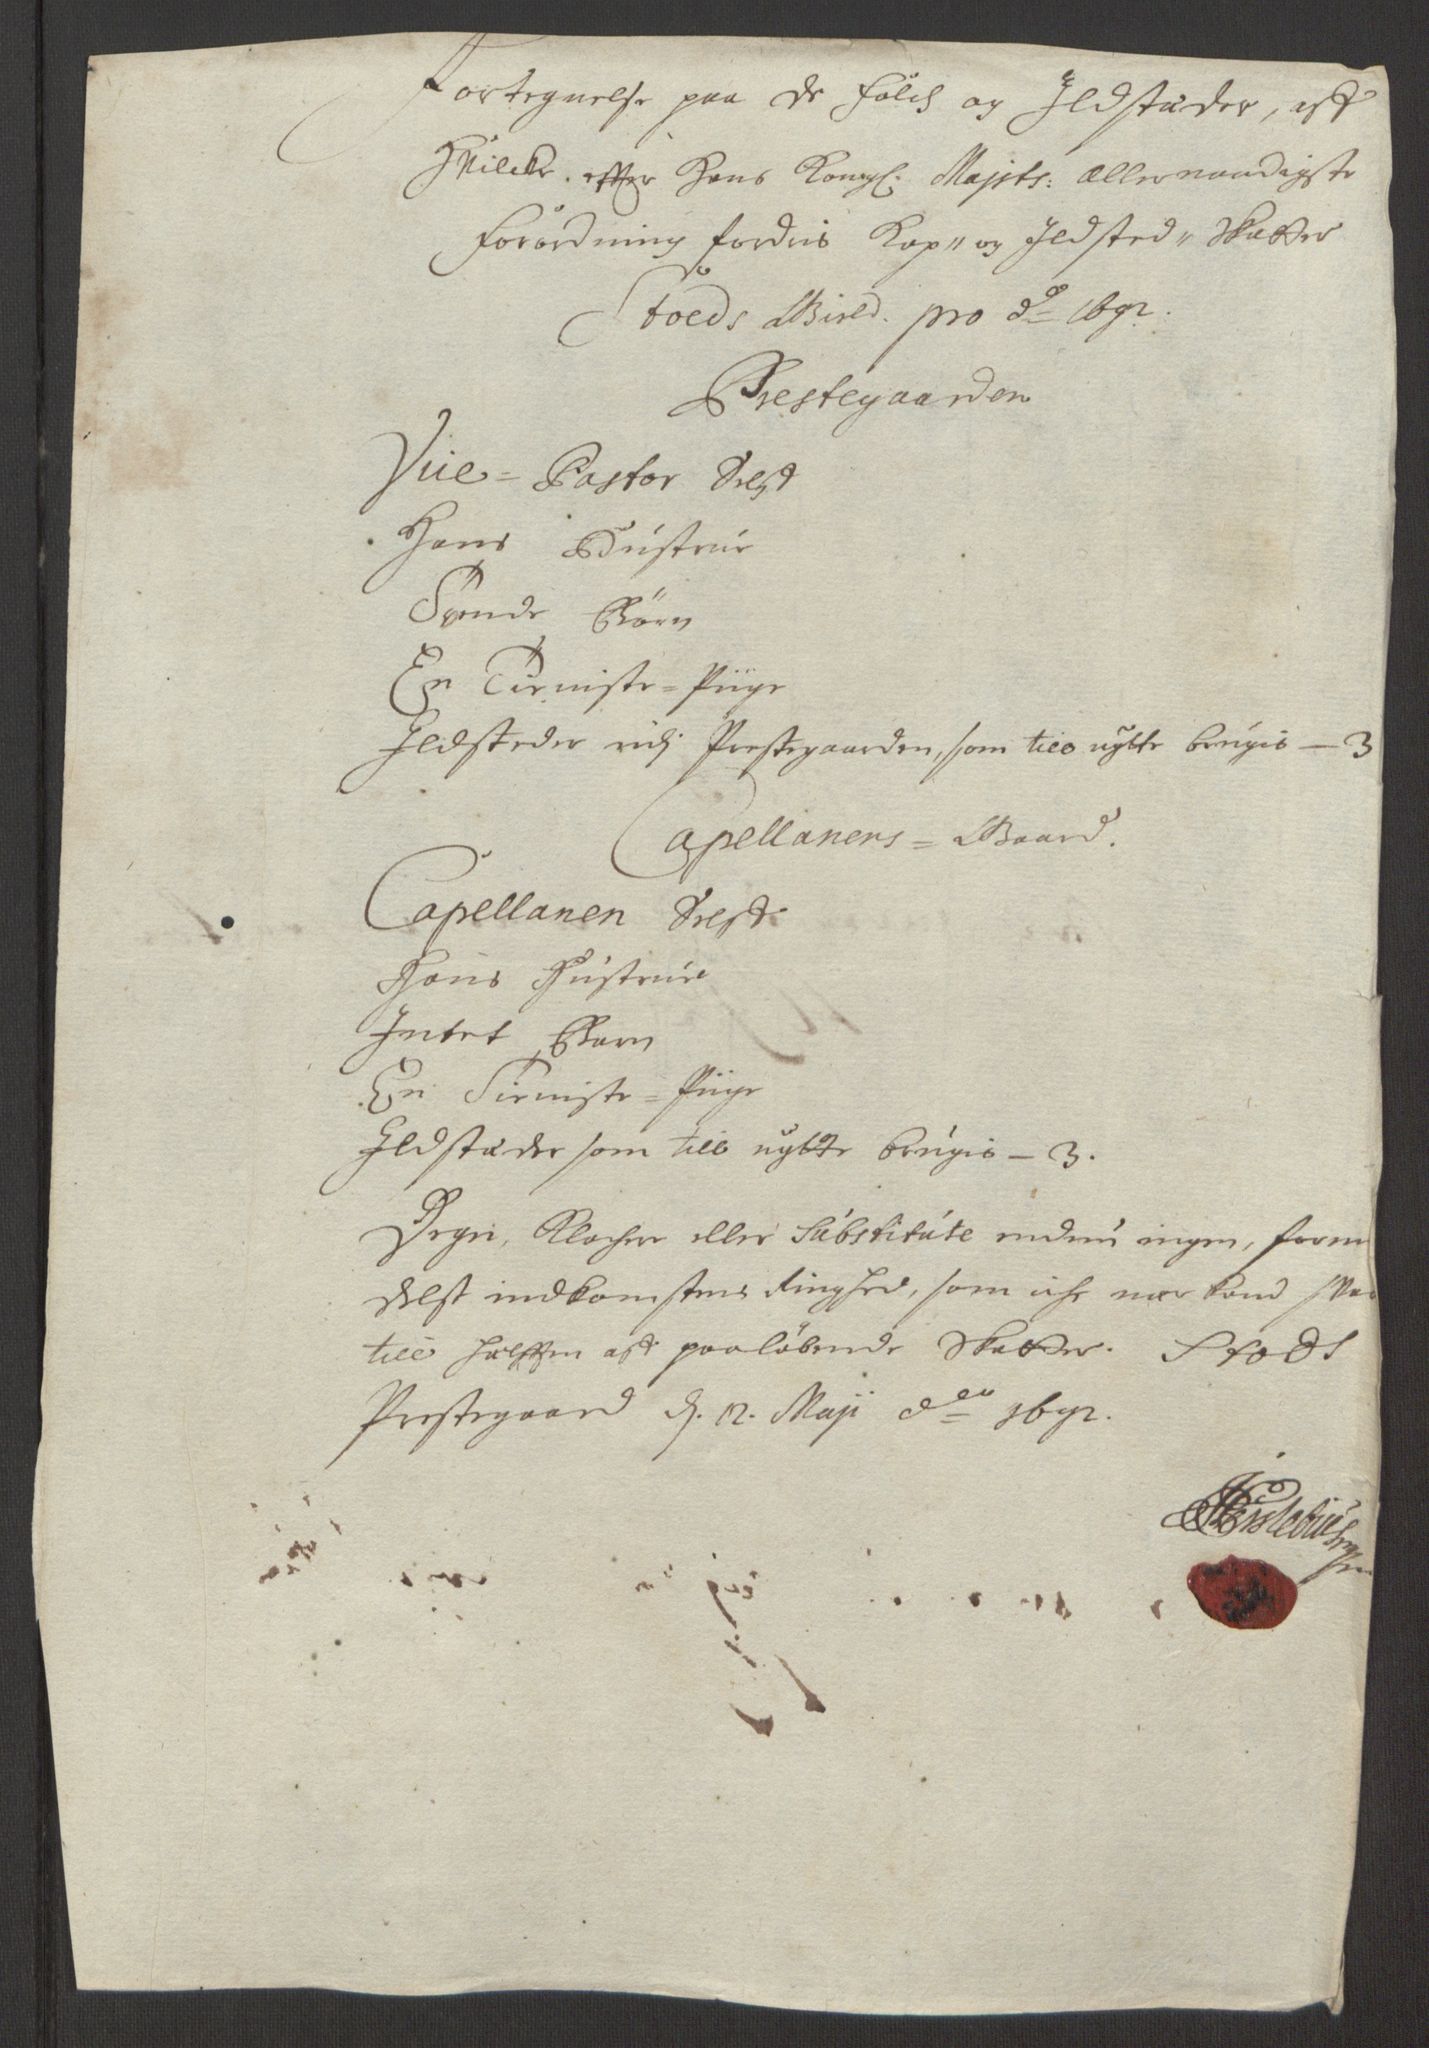 Fortegnelse paa de Folch og Ildstæder, aff
Hvilcke effter Hans Kongl: Majsts: allernaadigste
Forordning fordris Kop- og Ildsted-Skatter
Stoeds Gield. pro Ao 1692.
Prestegaarden
Vice-Pastor Selff
Hans Hústrúe
Tvende Børn
En Tieniste-Piige
Ildsteder ved Prestegaarden, som till nytte brúgis – 3
Capellanens-Gaard.
Capellanen Selff
Hans Hústrúe
Intet Barn
En Tieniste-Piige
Ildstæder som till nytte brúgis – 3.
Degn, Klocher eller Súbstitúte endnú ingen, form
delst indkomstens Ringhed, som iche nær kand
till helfften aff paaløbende Skatter. Stods
Prestegaard d. 12. Maji Ao 1692.